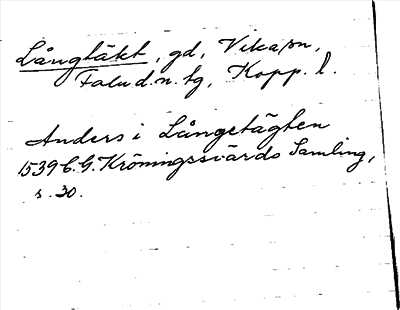 Långtäkt, gd, Vika sn,
Falu d.n. tg, Kopp. l.
Anders i Långetägten
1539 C.G. Kröningssvärds Samling,
s. 30.